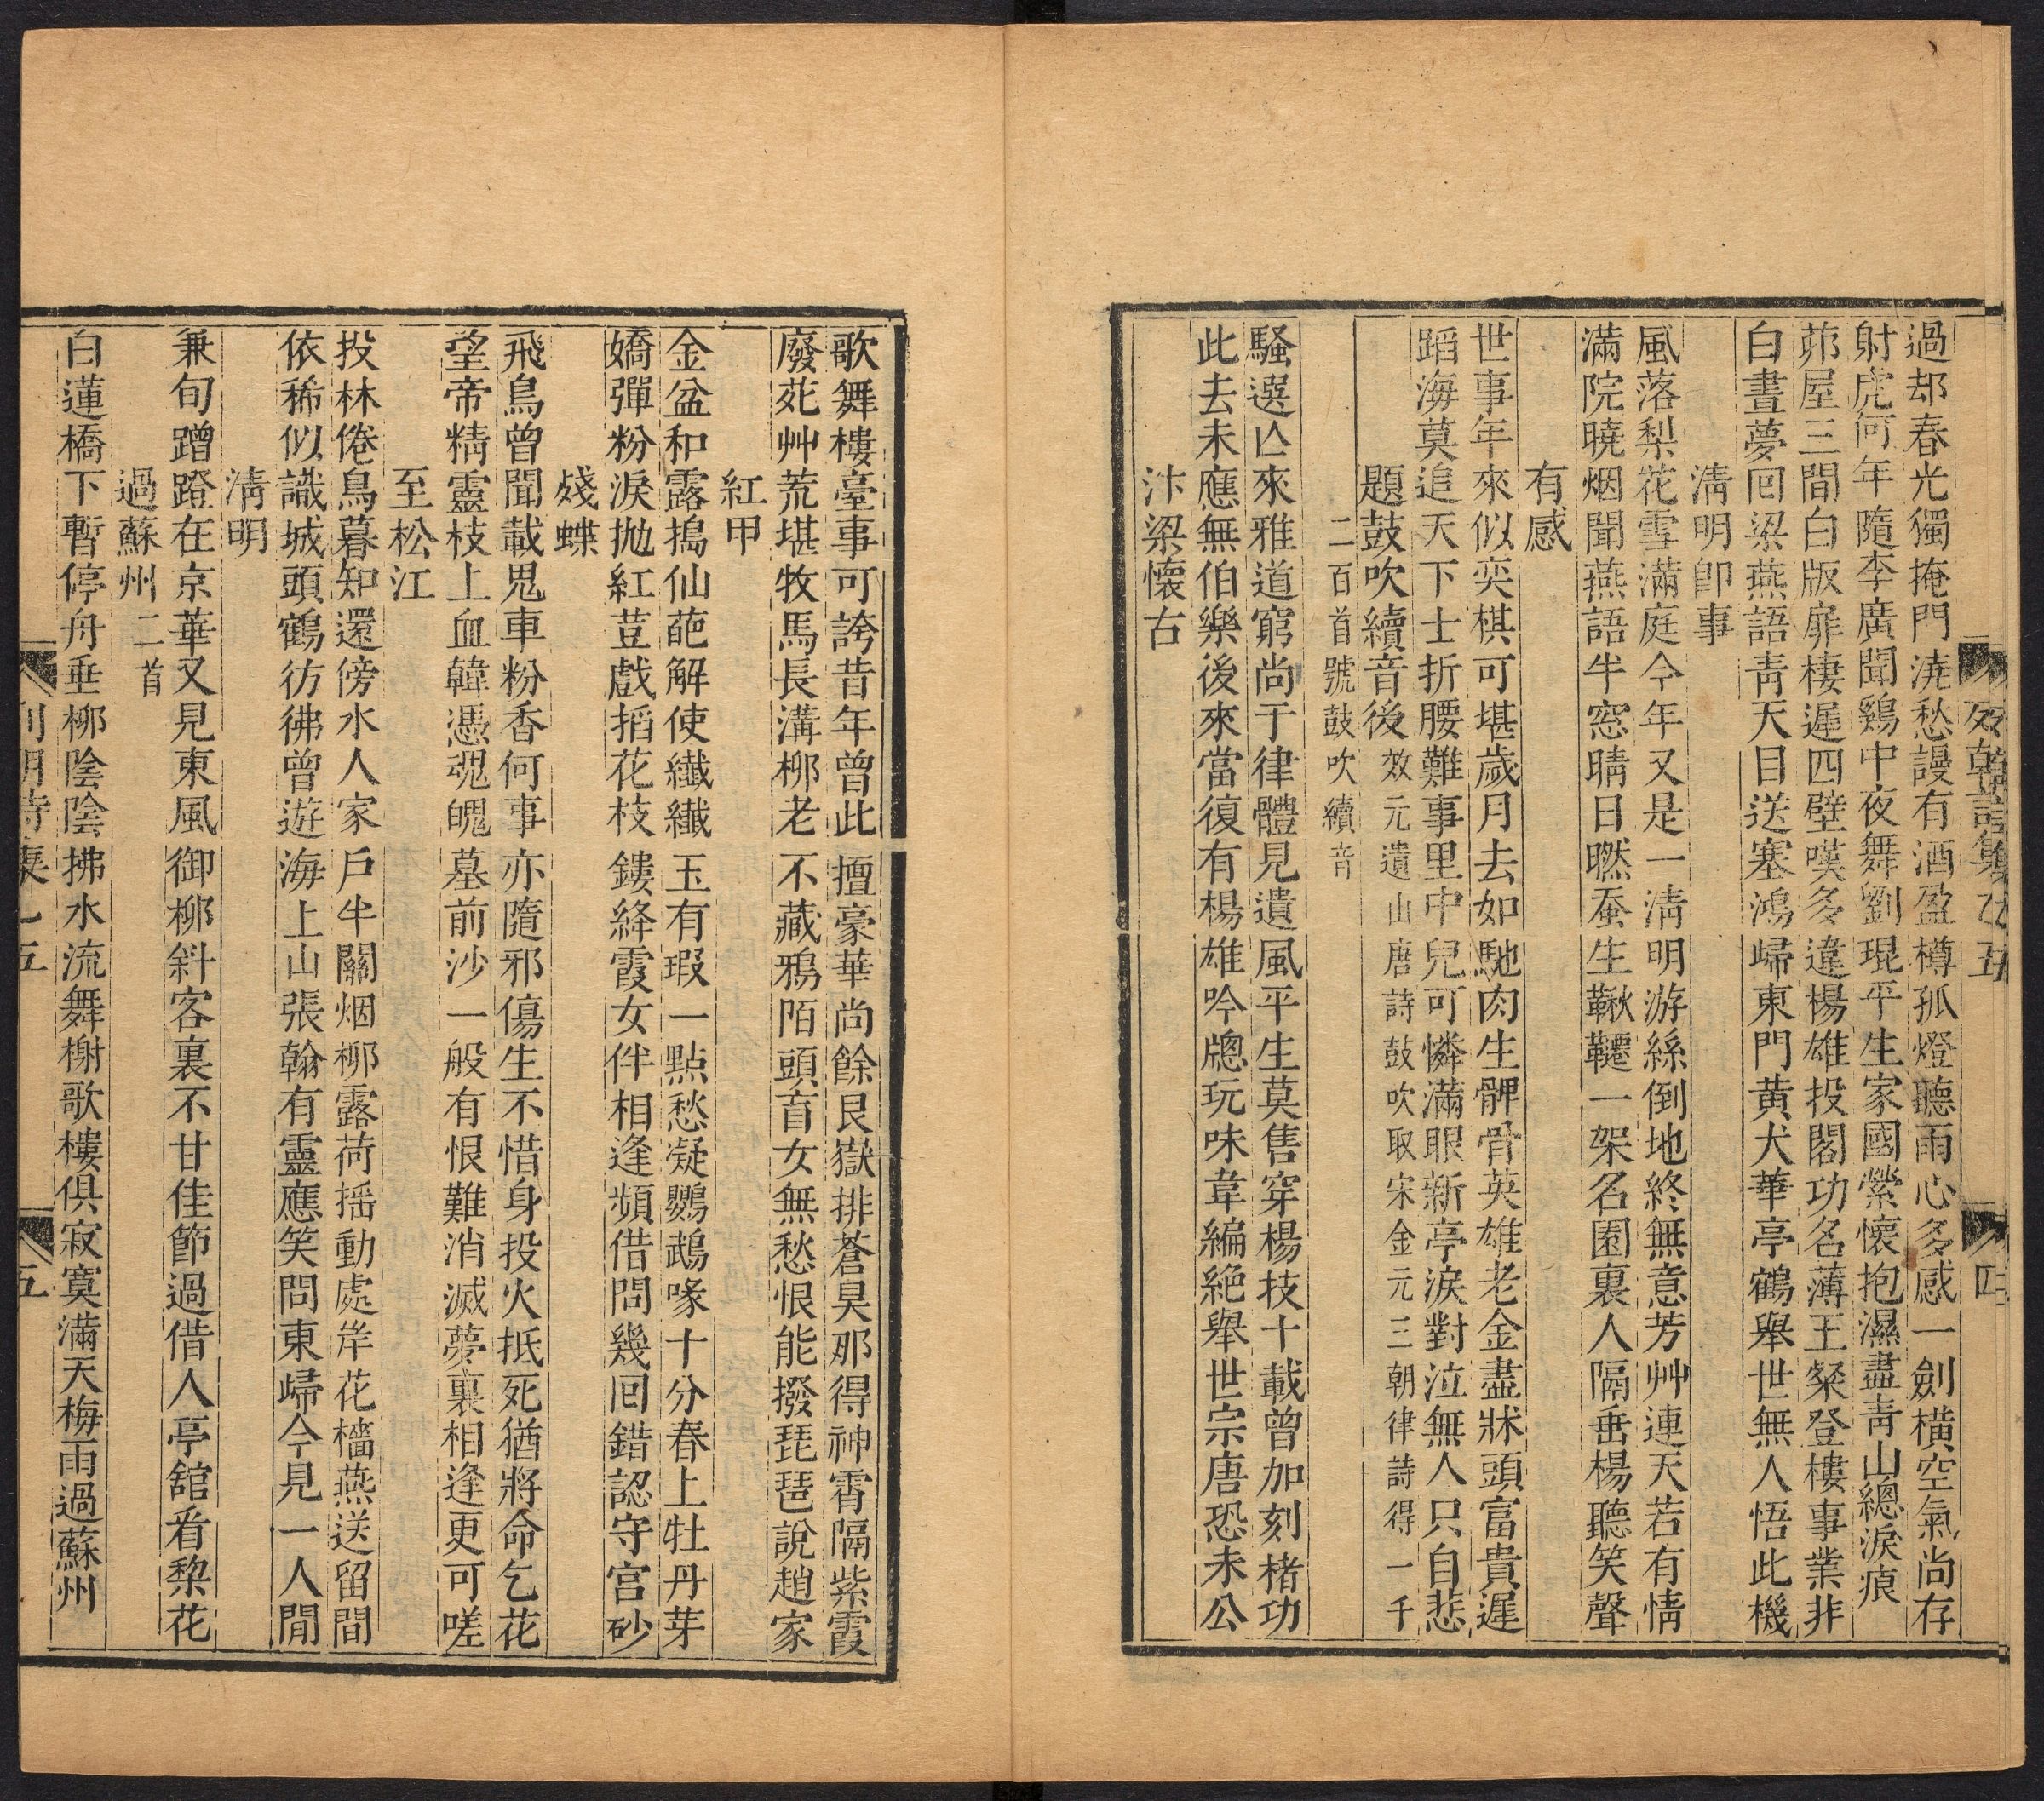 過却春光獨掩門澆愁謾有酒盈樽孤燈聽雨心多感一劍橫空氣尚存
射虎何年隨李廣聞鷄中夜舞劉琨平生家國縈懷抱濕盡青山總淚痕
茆屋三間白版扉棲遲四壁嘆多違楊雄投閣功名薄王粲登樓事業非
白晝夢回梁燕語靑天目送塞鴻歸東門黄犬華亭鶴舉世無人悟此機
淸明卽事
風落梨花雪滿庭今年又是一淸明游絲倒地終無意芳艸連天若有情
滿院曉烟聞燕語半窓晴日㬠蚕生鞦韆一架名園裏人隔垂楊聽笑聲
有感
世事年來似奕棋可堪歲月去如馳肉生髀骨英雄老金盡牀頭富貴遲
蹈海莫追天下士折腰難事里中兒可憐滿眼新亭淚對泣無人只自悲
題鼓吹續音後
效元遺山唐詩鼓吹取宋金元三朝律詩得一千
二百首號鼓吹續音
騷選亾來雅道窮尚于律體見遺風平生莫售穿楊技十載曾加刻楮功
此去未應無伯樂後來當復有楊雄吟牕玩味韋編絶舉世宗唐恐未公
汴梁懷古
歌舞樓臺事可誇昔年曾此擅豪華尚餘艮嶽排蒼昊那得神霄隔紫霞
廢苑艸荒堪牧馬長溝栁老不藏鴉陌頭盲女無愁恨能撥琵琶說趙家
紅甲
金盆和露搗仙葩解使纖纖玉有瑕一點愁凝鸚鵡喙十分春上牡丹芽
嬌彈粉淚抛紅荳戲掐花枝鏤絳霞女伴相逢頻借問幾回錯認守宫砂
殘蝶
飛鳥曾聞載鬼車粉香何事亦隨邪傷生不惜身投火抵死猶將命乞花
望帝精靈枝上血韓憑魂魄墓前沙一般有恨難消滅夢裏相逢更可嗟
至松江
投林倦鳥暮知還傍水人家戶半關烟栁露荷揺動處岸花檣燕送留間
依稀似識城頭鶴彷彿曾遊海上山張翰有靈應笑問東歸今見一人閒
淸明
兼旬蹭蹬在京華又見東風御栁斜客裏不甘佳節過借人亭舘看棃花
過蘇州二首
白蓮橋下暫停舟垂栁陰陰拂水流舞榭歌樓俱寂寞滿天梅雨過蘇州